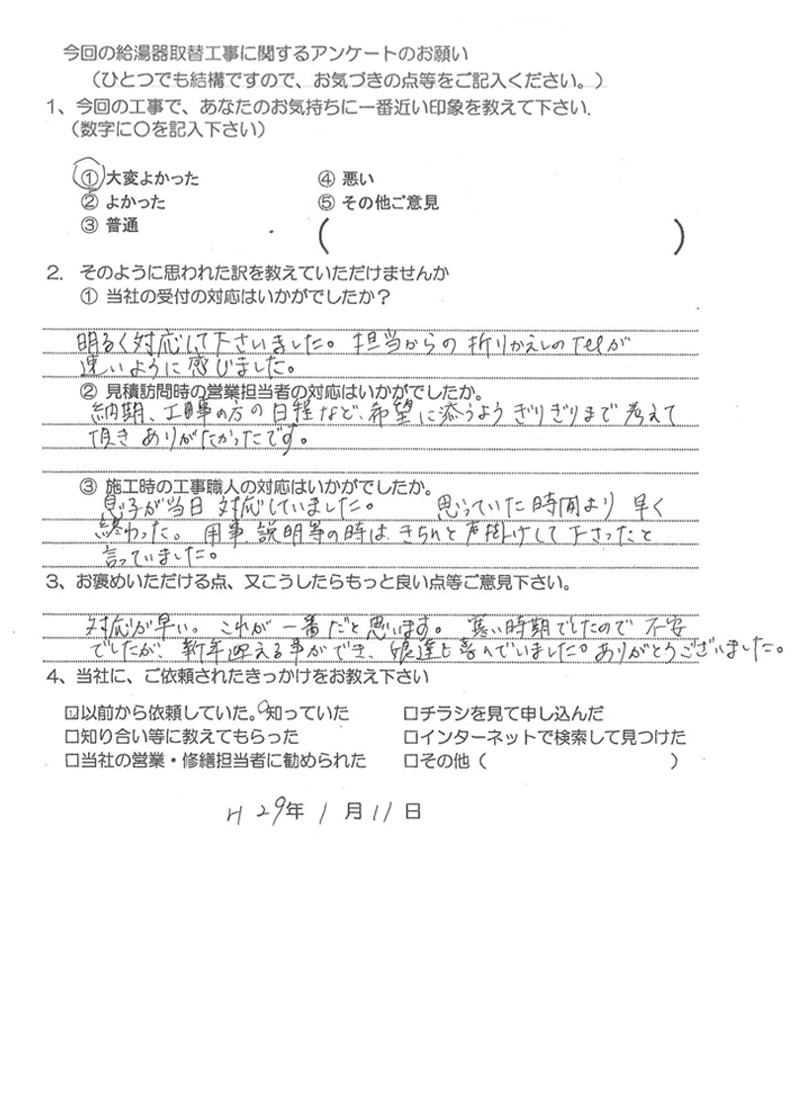 今回の給湯器取替工事に関するアンケートのお願い
（ひとつでも結構ですので、お気づきの点等をご記入ください。）
1、今回の工事で、あなたのお気持ちに一番近い印象を教えて下さい.
（数字に〇を記入下さい）
① 大変よかった ④ 悪い
② よかった ⑤ その他ご意見
③ 普通 ( )
2. そのように思われた訳を教えていただけませんか
① 当社の受付の対応はいかがでしたか？
明るく対応して下さいました。担当からの折りかえしのTelが
速いように感じました。
② 見積訪問時の営業担当者の対応はいかがでしたか。
納期、工事の方の日程など、希望に添うようぎりぎりまで考えて
頂きありがたかったです。
③ 施工時の工事職人の対応はいかがでしたか。
息子が当日対応していました。 思っていた時間より早く
終わった。用事、説明等の時は、きちんと声掛けして下さったと
言っていました。
3、お褒めいただける点、又こうしたらもっと良い点等ご意見下さい。
対応が早い。これが一番だと思います。寒い時期でしたので不安
でしたが、新年迎える事ができ、娘達も喜んでいました。ありがとうございました。
4、当社に、ご依頼されたきっかけをお教え下さい
☑以前から依頼していた。知っていた □チラシを見て申し込んだ
□知り合い等に教えてもらった □インターネットで検索して見つけた
□当社の営業・修繕担当者に勧められた □その他（ ）
H 29年 1月 11日